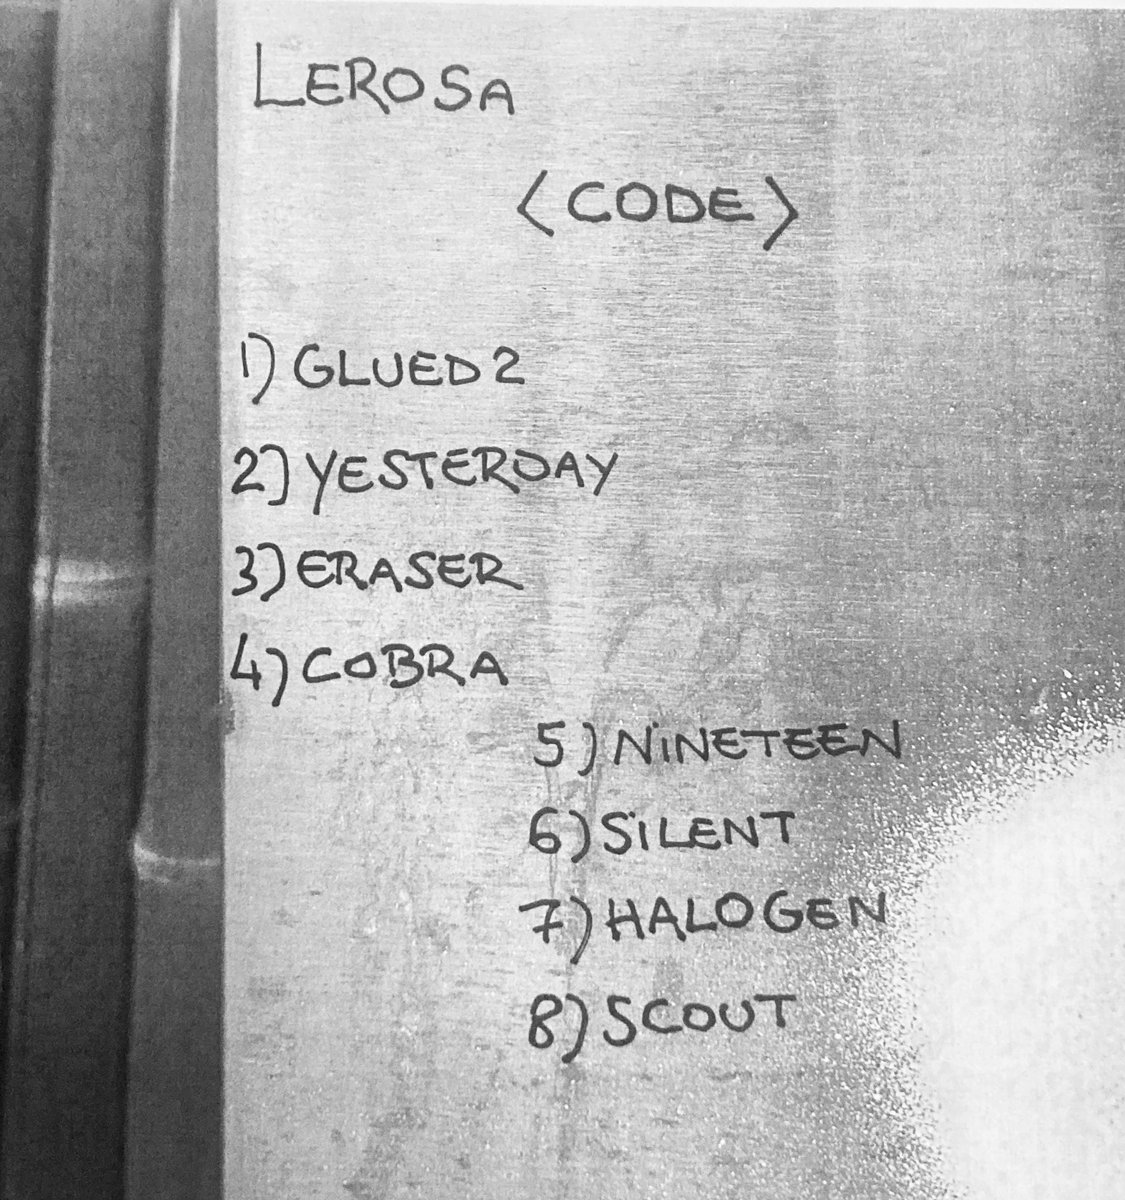 LEROSA
<CODE>
1) GLUED 2
2) YESTERDAY
3) ERASER
4) COBRA
5) NINETEEN
6) SILENT
7) HALOGEN
8) SCOUT